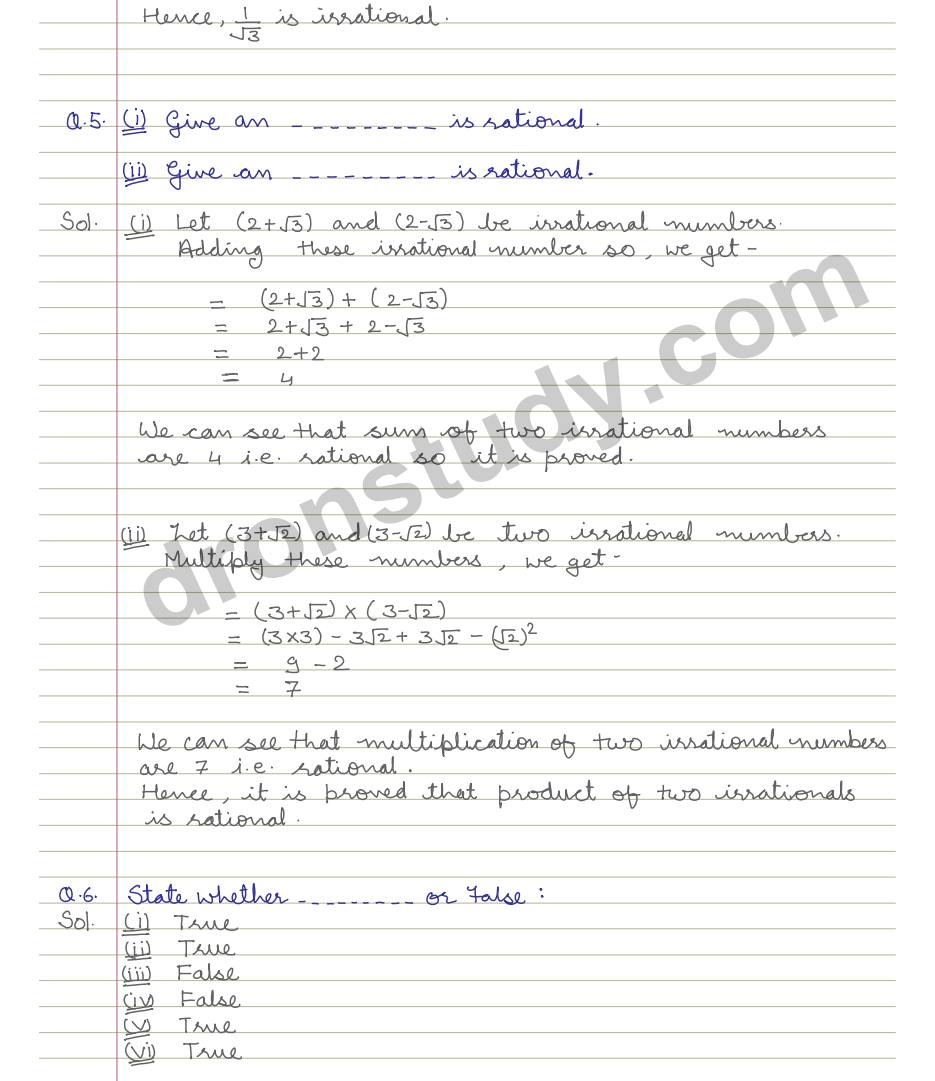 Hence, 1/√3 is irrational.
Q.5. (i) Give an ---------- is rational.
(ii) Give an ---------- is rational.
Sol. (i) Let (2+√3) and (2-√3) be irrational numbers.
Adding these irrational number so, we get -
= (2+√3) + (2-√3)
= 2+√3 + 2-√3
= 2+2
= 4
We can see that sum of two irrational numbers
are 4 i.e. rational so it is proved.
(ii) Let (3+√2) and (3-√2) be two irrational numbers.
Multiply these numbers, we get -
= (3+√2) × (3-√2)
= (3×3) - 3√2 + 3√2 - (√2)²
= 9 - 2
= 7
We can see that multiplication of two irrational numbers
are 7 i.e. rational.
Hence, it is proved that product of two irrationals
is rational.
Q.6. State whether --------- or False :
Sol. (i) True
(ii) True
(iii) False
(iv) False
(v) True
(vi) True
dronstudy.com